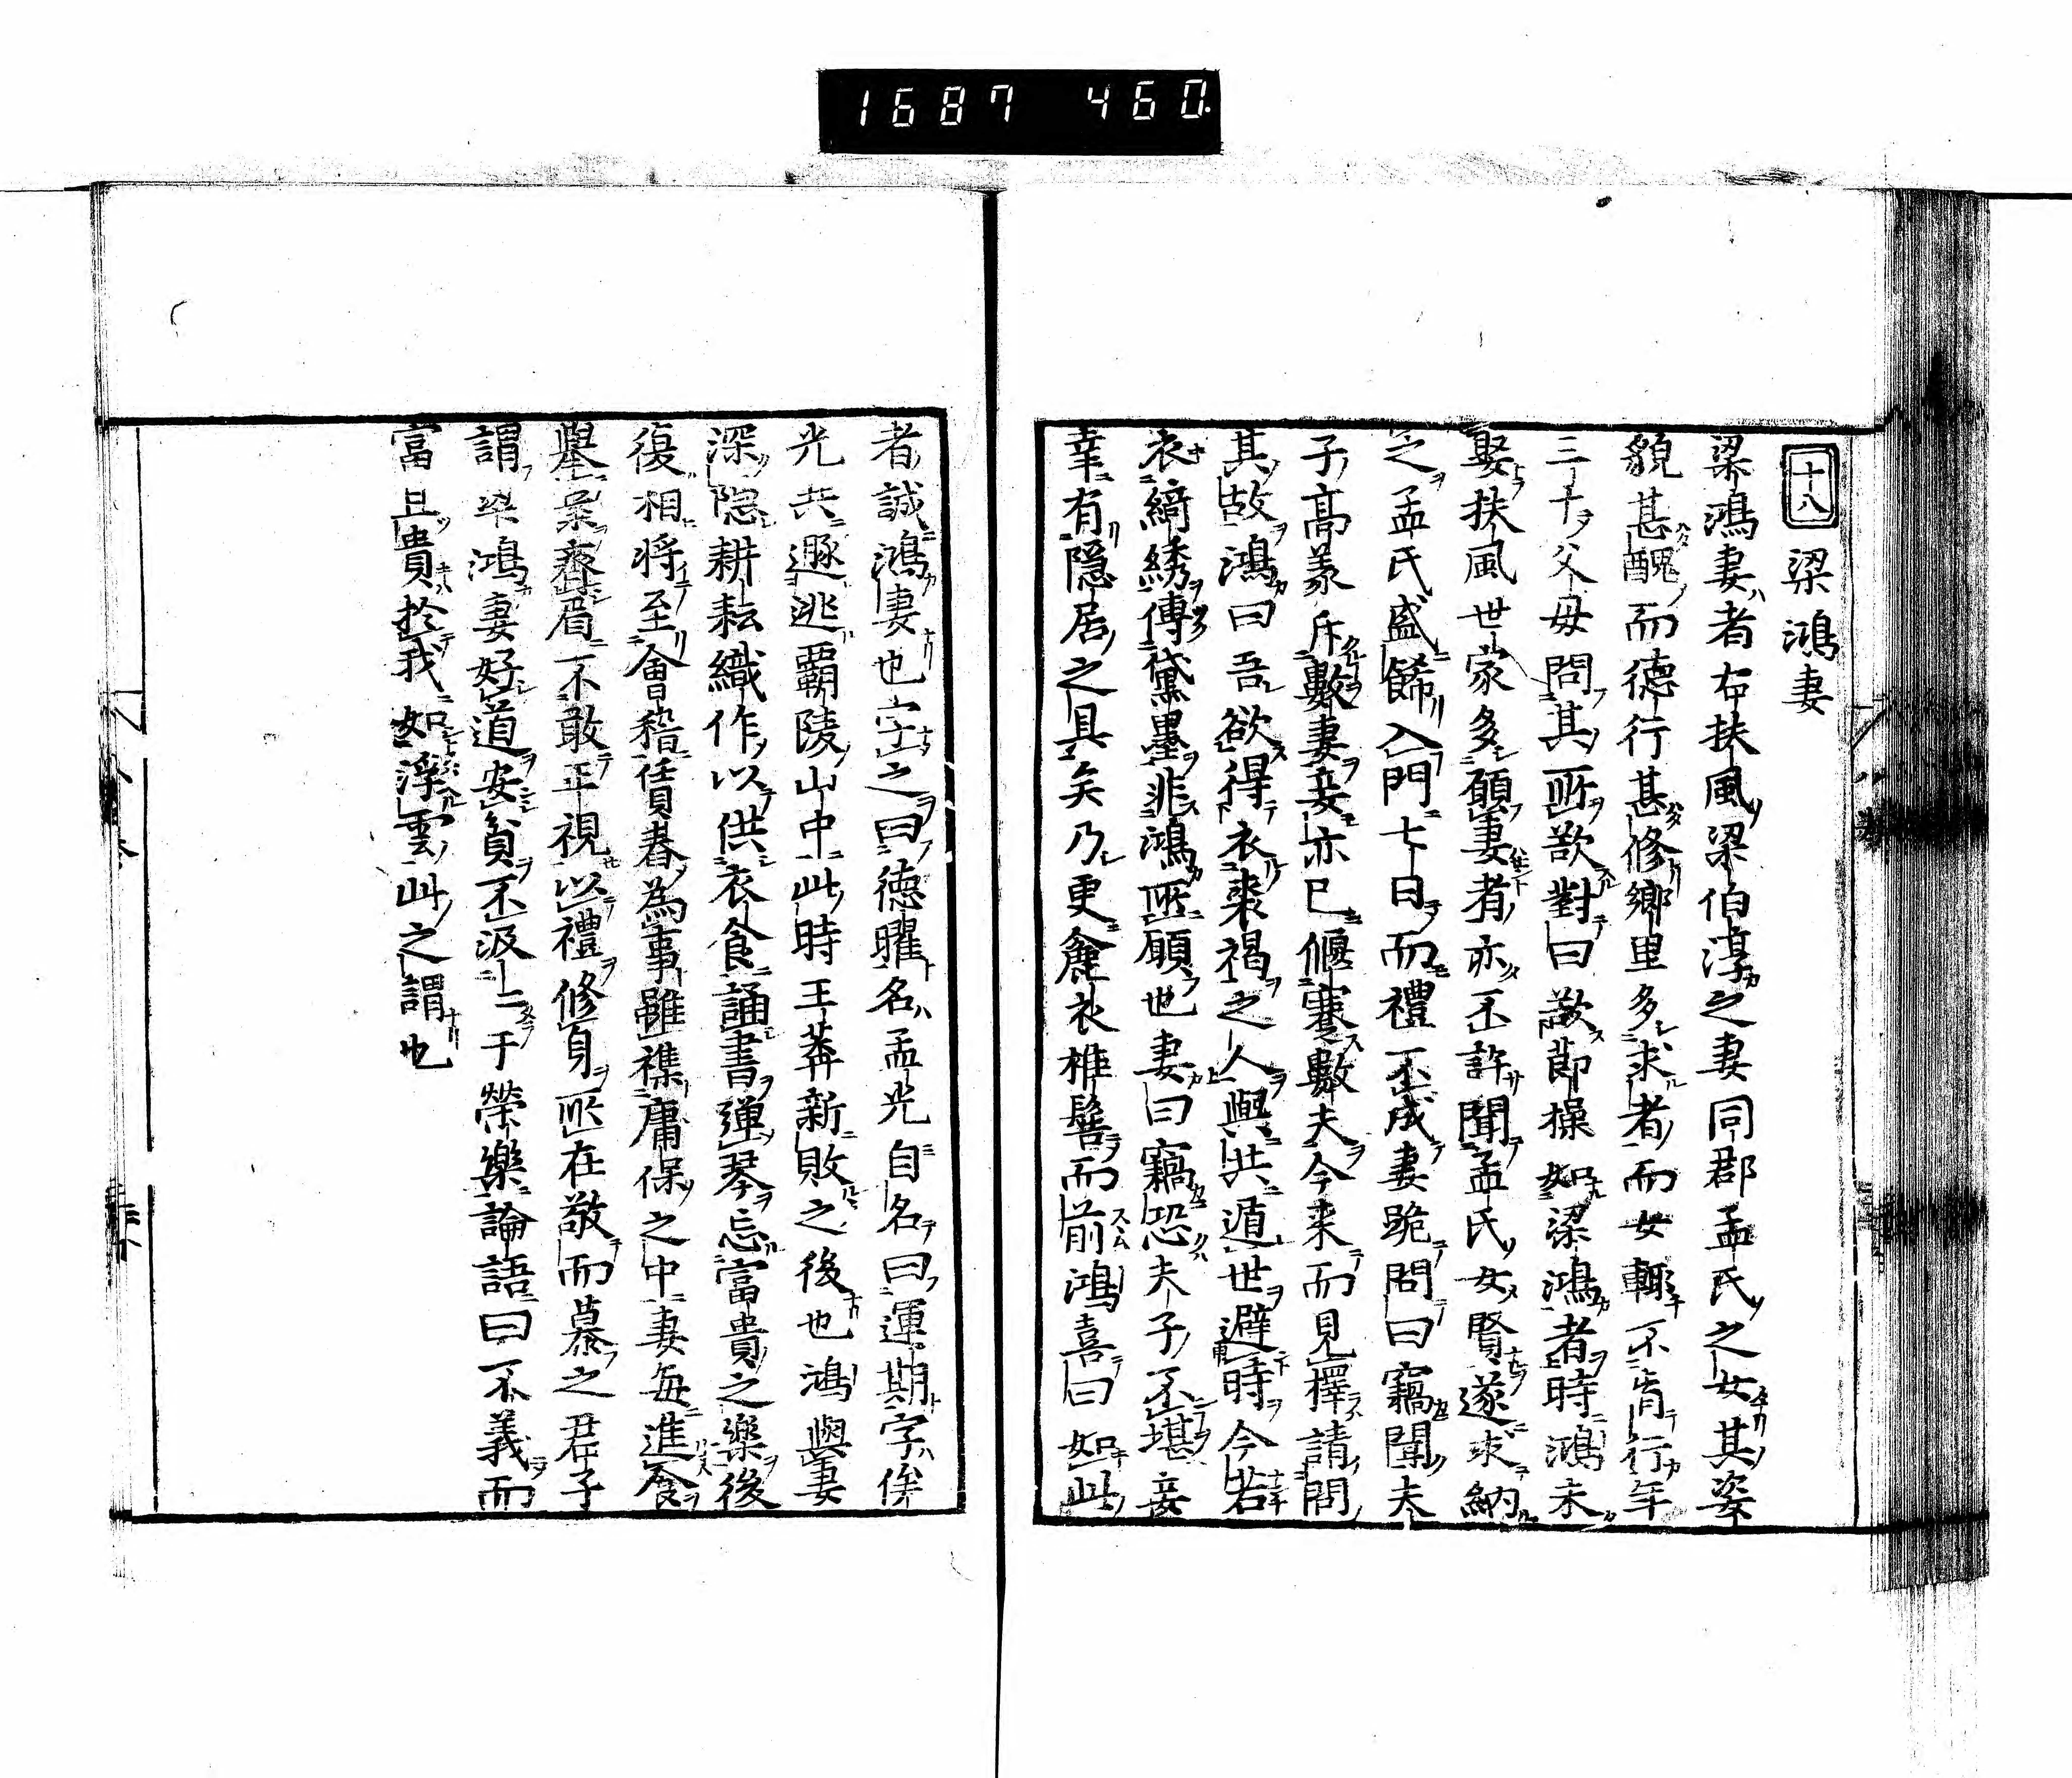 1687 460
十八 梁鴻妻
梁鴻妻者右扶風梁伯淳之妻同郡孟氏之女其姿
貌甚醜而德行甚修鄉里多求者而女輒不肯行年
三十父母問其所欲對曰欲節操如梁鴻者時鴻未
娶扶風世家多願妻者亦不許聞孟氏女賢遂求納
之孟氏盛餙入門七日而禮不成妻跪問曰竊聞夫
子高義斥數妻妾亦已偃蹇數夫今来而見擇請問
其故鴻曰吾欲得衣裘褐之人與共遁世避時今若
衣綺綉傅黛墨非鴻所願也妻曰竊恐夫子不堪妾
幸有隱居之具矣乃更麁衣椎髻而前鴻喜曰如此
者誠鴻妻也字之曰德曜名孟光自名曰運期字俟
光共遯逃覇陵山中此時王莽新敗之後也鴻與妻
深隐耕耘織作以供衣食誦書彈琴忘富貴之樂後
復相将至會稽賃舂為事雖襍庸保之中妻每進食
舉案齊眉不敢正視以禮修身所在敬而慕之君子
謂梁鴻妻好道安貧不汲二于榮樂論語曰不義而
富且貴扵我如浮雲此之謂也